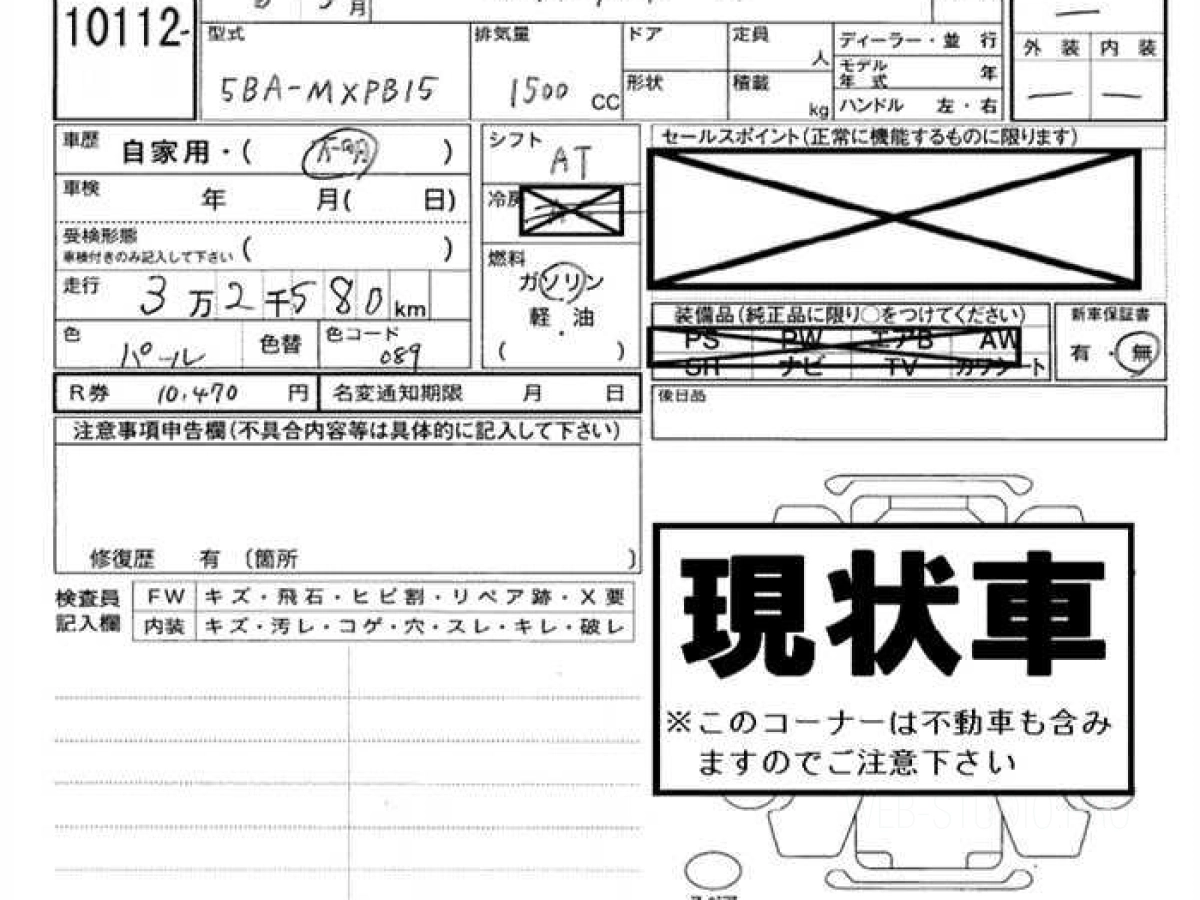 10112-
月
型式
5BA-MXPB15
排気量
1500 CC
ドア
形状
定員
人
積載
kg
ディーラー・並 行
モデル
年 式
年
ハンドル 左・右
外 装 内 装
— —
車歴
自家用・( )
車検
年 月( 日)
受検形態
車検付きのみ記入して下さい ( )
走行
3万2千580km
色
パール
色替
色コード
089
シフト
AT
冷房
燃料
ガソリン
軽・油
( )
セールスポイント(正常に機能するものに限ります)
装備品(純正品に限り○をつけてください)
PS PW エアB AW
SR ナビ TV カワシート
新車保証書
有・無
後日品
R券 10,470 円
名変通知期限 月 日
注意事項申告欄(不具合内容等は具体的に記入して下さい)
修復歴 有 (箇所 )
検査員
記入欄
FW キズ・飛石・ヒビ割・リペア跡・X要
内装 キズ・汚レ・コゲ・穴・スレ・キレ・破レ
現状車
※このコーナーは不動車も含み
ますのでご注意下さい